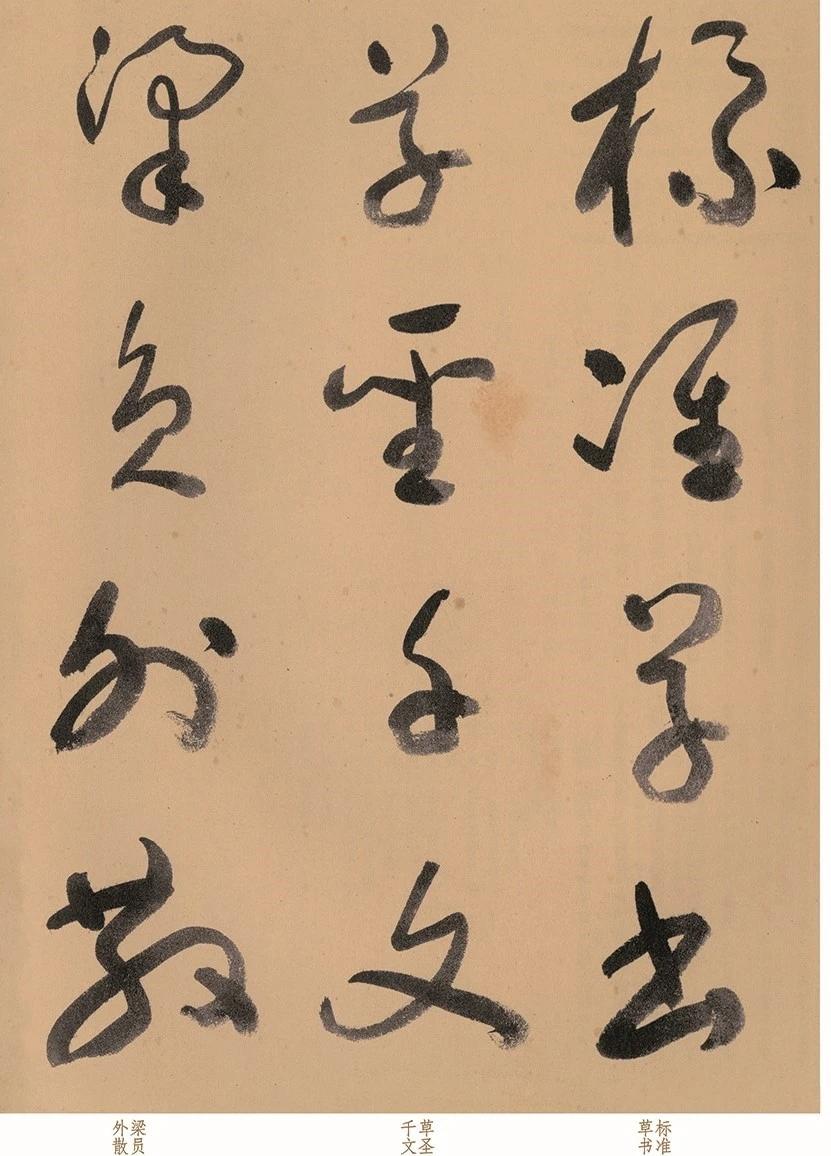 標準草書
草聖千文
梁員外散
标准
草书
草圣
千文
梁员
外散